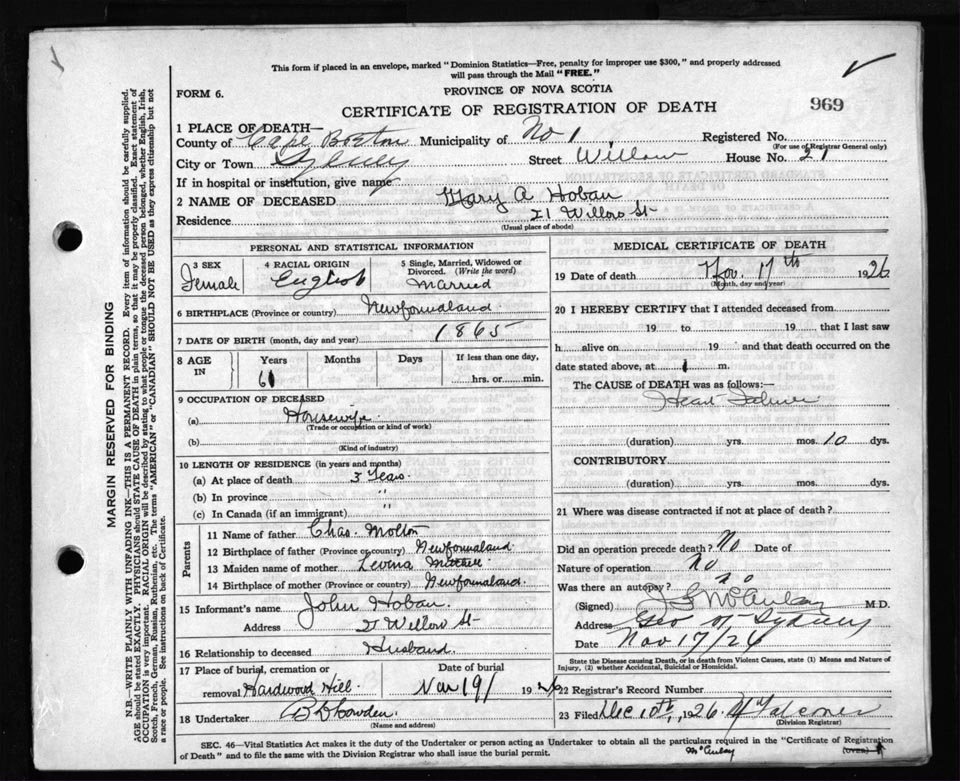 This form if placed in an envelope, marked "Dominion Statistics—Free, penalty for improper use $300," and properly addressed
will pass through the Mail "FREE."
FORM 6.
PROVINCE OF NOVA SCOTIA
CERTIFICATE OF REGISTRATION OF DEATH
969
1 PLACE OF DEATH—
County of Cape Breton Municipality of No 1 Registered No.
(For use of Registrar General only)
City or Town Sydney Street Willow House No. 21
If in hospital or institution, give name
2 NAME OF DECEASED Mary A Hoban
Residence 21 Willow St
(Usual place of abode)
PERSONAL AND STATISTICAL INFORMATION
3 SEX
Female
4 RACIAL ORIGIN
English
5 Single, Married, Widowed or
Divorced. (Write the word)
Married
6 BIRTHPLACE (Province or country) Newfoundland
7 DATE OF BIRTH (month, day and year) 1865
8 AGE IN
Years Months Days If less than one day,
61 hrs. or min.
9 OCCUPATION OF DECEASED
(a) Housewife
(Trade or occupation or kind of work)
(b)
(Kind of industry)
10 LENGTH OF RESIDENCE (in years and months)
(a) At place of death 3 Years
(b) In province "
(c) In Canada (if an immigrant) "
Parents
11 Name of father Chas. Molton
12 Birthplace of father (Province or country) Newfoundland
13 Maiden name of mother Levina
14 Birthplace of mother (Province or country) Newfoundland.
15 Informant's name John Hoban.
Address 21 Willow St
16 Relationship to deceased Husband
17 Place of burial, cremation or
removal Hardwood Hill
Date of burial
Nov 19/ 1926
18 Undertaker
MEDICAL CERTIFICATE OF DEATH
19 Date of death Nov. 17th 1926
(Month, day and year)
20 I HEREBY CERTIFY that I attended deceased from
19 to 19 that I last saw
h alive on 19 and that death occurred on the
date stated above, at m.
The CAUSE OF DEATH was as follows:—
Heart Failure
(duration) yrs. mos. 10 dys.
CONTRIBUTORY
(duration) yrs. mos. dys.
21 Where was disease contracted if not at place of death?
Did an operation precede death? No Date of
Nature of operation No
Was there an autopsy? No
(Signed) M.D.
Address Sydney
Date Nov 17/26
State the Disease causing Death, or in death from Violent Causes, state (1) Means and Nature of
Injury, (2) whether Accidental, Suicidal or Homicidal.
22 Registrar's Record Number
23 Filed Dec 10th, 1926.
(Division Registrar)
SEC. 46—Vital Statistics Act makes it the duty of the Undertaker or person acting as Undertaker to obtain all the particulars required in the "Certificate of Registration
of Death" and to file the same with the Division Registrar who shall issue the burial permit.
(OVER)
MARGIN RESERVED FOR BINDING
N.B.—WRITE PLAINLY WITH UNFADING INK—THIS IS A PERMANENT RECORD. Every item of information should be carefully supplied.
AGE should be stated EXACTLY. PHYSICIANS should STATE CAUSE OF DEATH in plain terms, so that it may be properly classified. Exact statement of
OCCUPATION is very important. RACIAL ORIGIN will be described by stating to what people or tongue the deceased person belonged, whether English, Irish,
Scotch, French, German, Russian, Ruthenian, etc. The terms "AMERICAN" or "CANADIAN" SHOULD NOT BE USED as they express citizenship but not
a race or people. See instructions on back of Certificate.